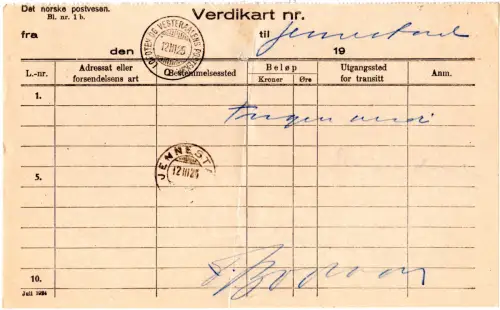 Det norske postvesen.
Bl. nr. 1 b.
Verdikart nr.
fra
til Jennestad
den
19
LOFOTEN OG VESTERAALENS POSTEKSP.
12 III 25
C
L.-nr.
Adressat eller forsendelsens art
Bestemmelsessted
Beløp
Kroner
Øre
Utgangssted for transitt
Anm.
1.
Ingen verdi
JENNEST
12 III 25
5.
10.
Juli 1924